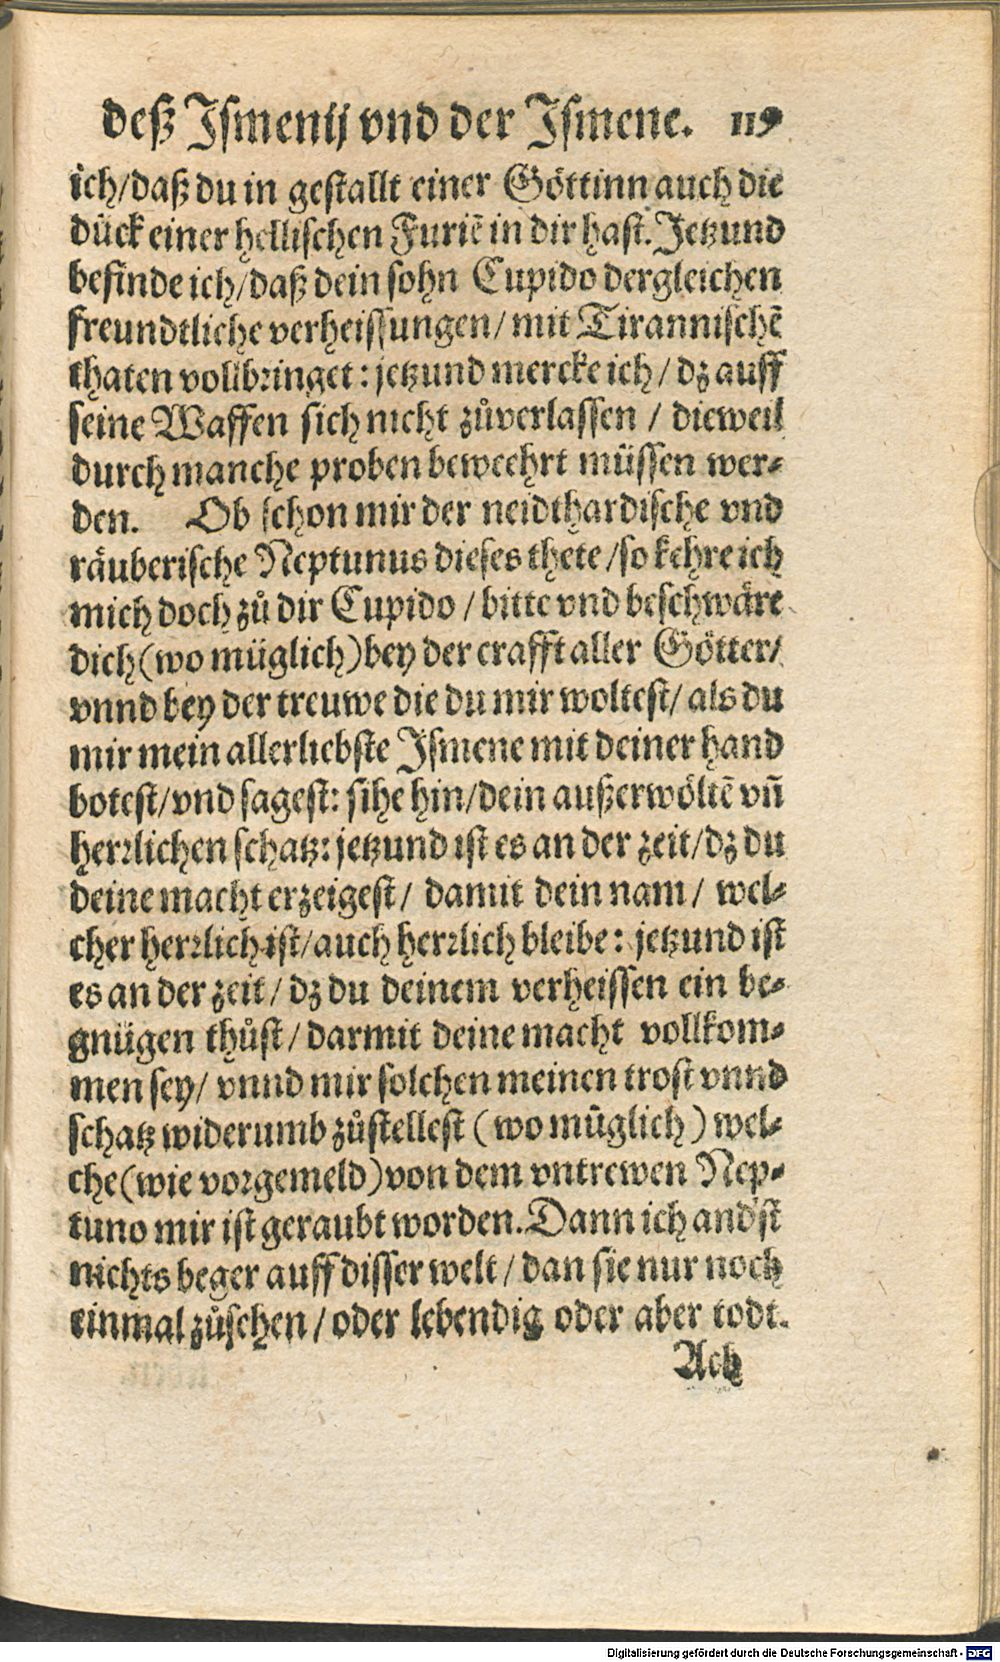 deß Ismenij vnd der Ismene. 119
ich/daß du in gestallt einer Göttinn auch die
dück einer hellischen Furiẽ in dir hast. Jetzund
befinde ich/daß dein sohn Cupido dergleichen
freundtliche verheissungen/mit Tirannischẽ
thaten vollbringet: jetzund mercke ich/dz auff
seine Waffen sich nicht zůverlassen / dieweil
durch manche proben beweehrt müssen wer-
den. Ob schon mir der neidthardische vnd
räuberische Neptunus dieses thete/so kehre ich
mich doch zů dir Cupido / bitte vnd beschwäre
dich (wo müglich) bey der crafft aller Götter/
vnnd bey der treuwe die du mir woltest/als du
mir mein allerliebste Ismene mit deiner hand
botest/vnd sagest: sihe hin/dein außerwöltẽ vñ
herrlichen schatz: jetzund ist es an der zeit/dz du
deine macht erzeigest/ damit dein nam/ wel-
cher herrlich ist/auch herrlich bleibe: jetzund ist
es an der zeit/ dz du deinem verheissen ein be-
gnügen thůst/ darmit deine macht vollkom-
men sey/ vnnd mir solchen meinen trost vnnd
schatz widerumb zůstellest (wo müglich) wel-
che (wie vorgemeld) von dem vntrewen Nep-
tuno mir ist geraubt worden. Dann ich and'st
nichts beger auff disser welt/dan sie nur noch
einmal zůsehen/oder lebendig oder aber todt.
Ach
Digitalisierung gefördert durch die Deutsche Forschungsgemeinschaft - DFG